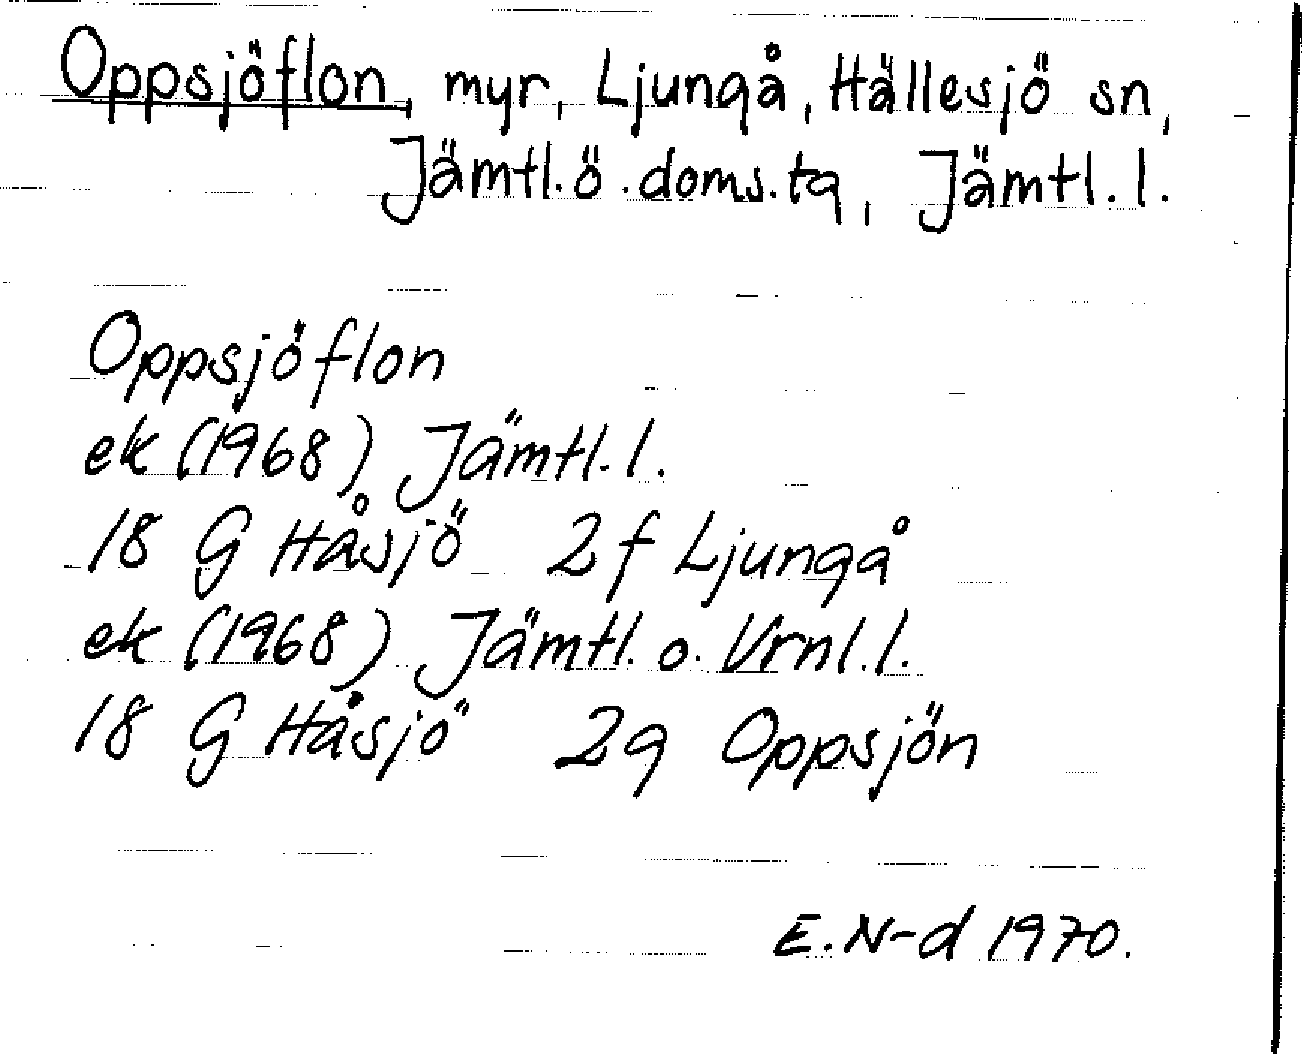 Oppsjöflon, myr, Ljungå, Hällesjö sn,
Jämtl. ö. doms. tg, Jämtl. l.
Oppsjöflon
ek (1968) Jämtl. l.
18 G Håsjö 2f Ljungå
ek (1968) Jämtl. o. Vrnl. l.
18 G Håsjö 2g Oppsjön
E. N-d 1970.